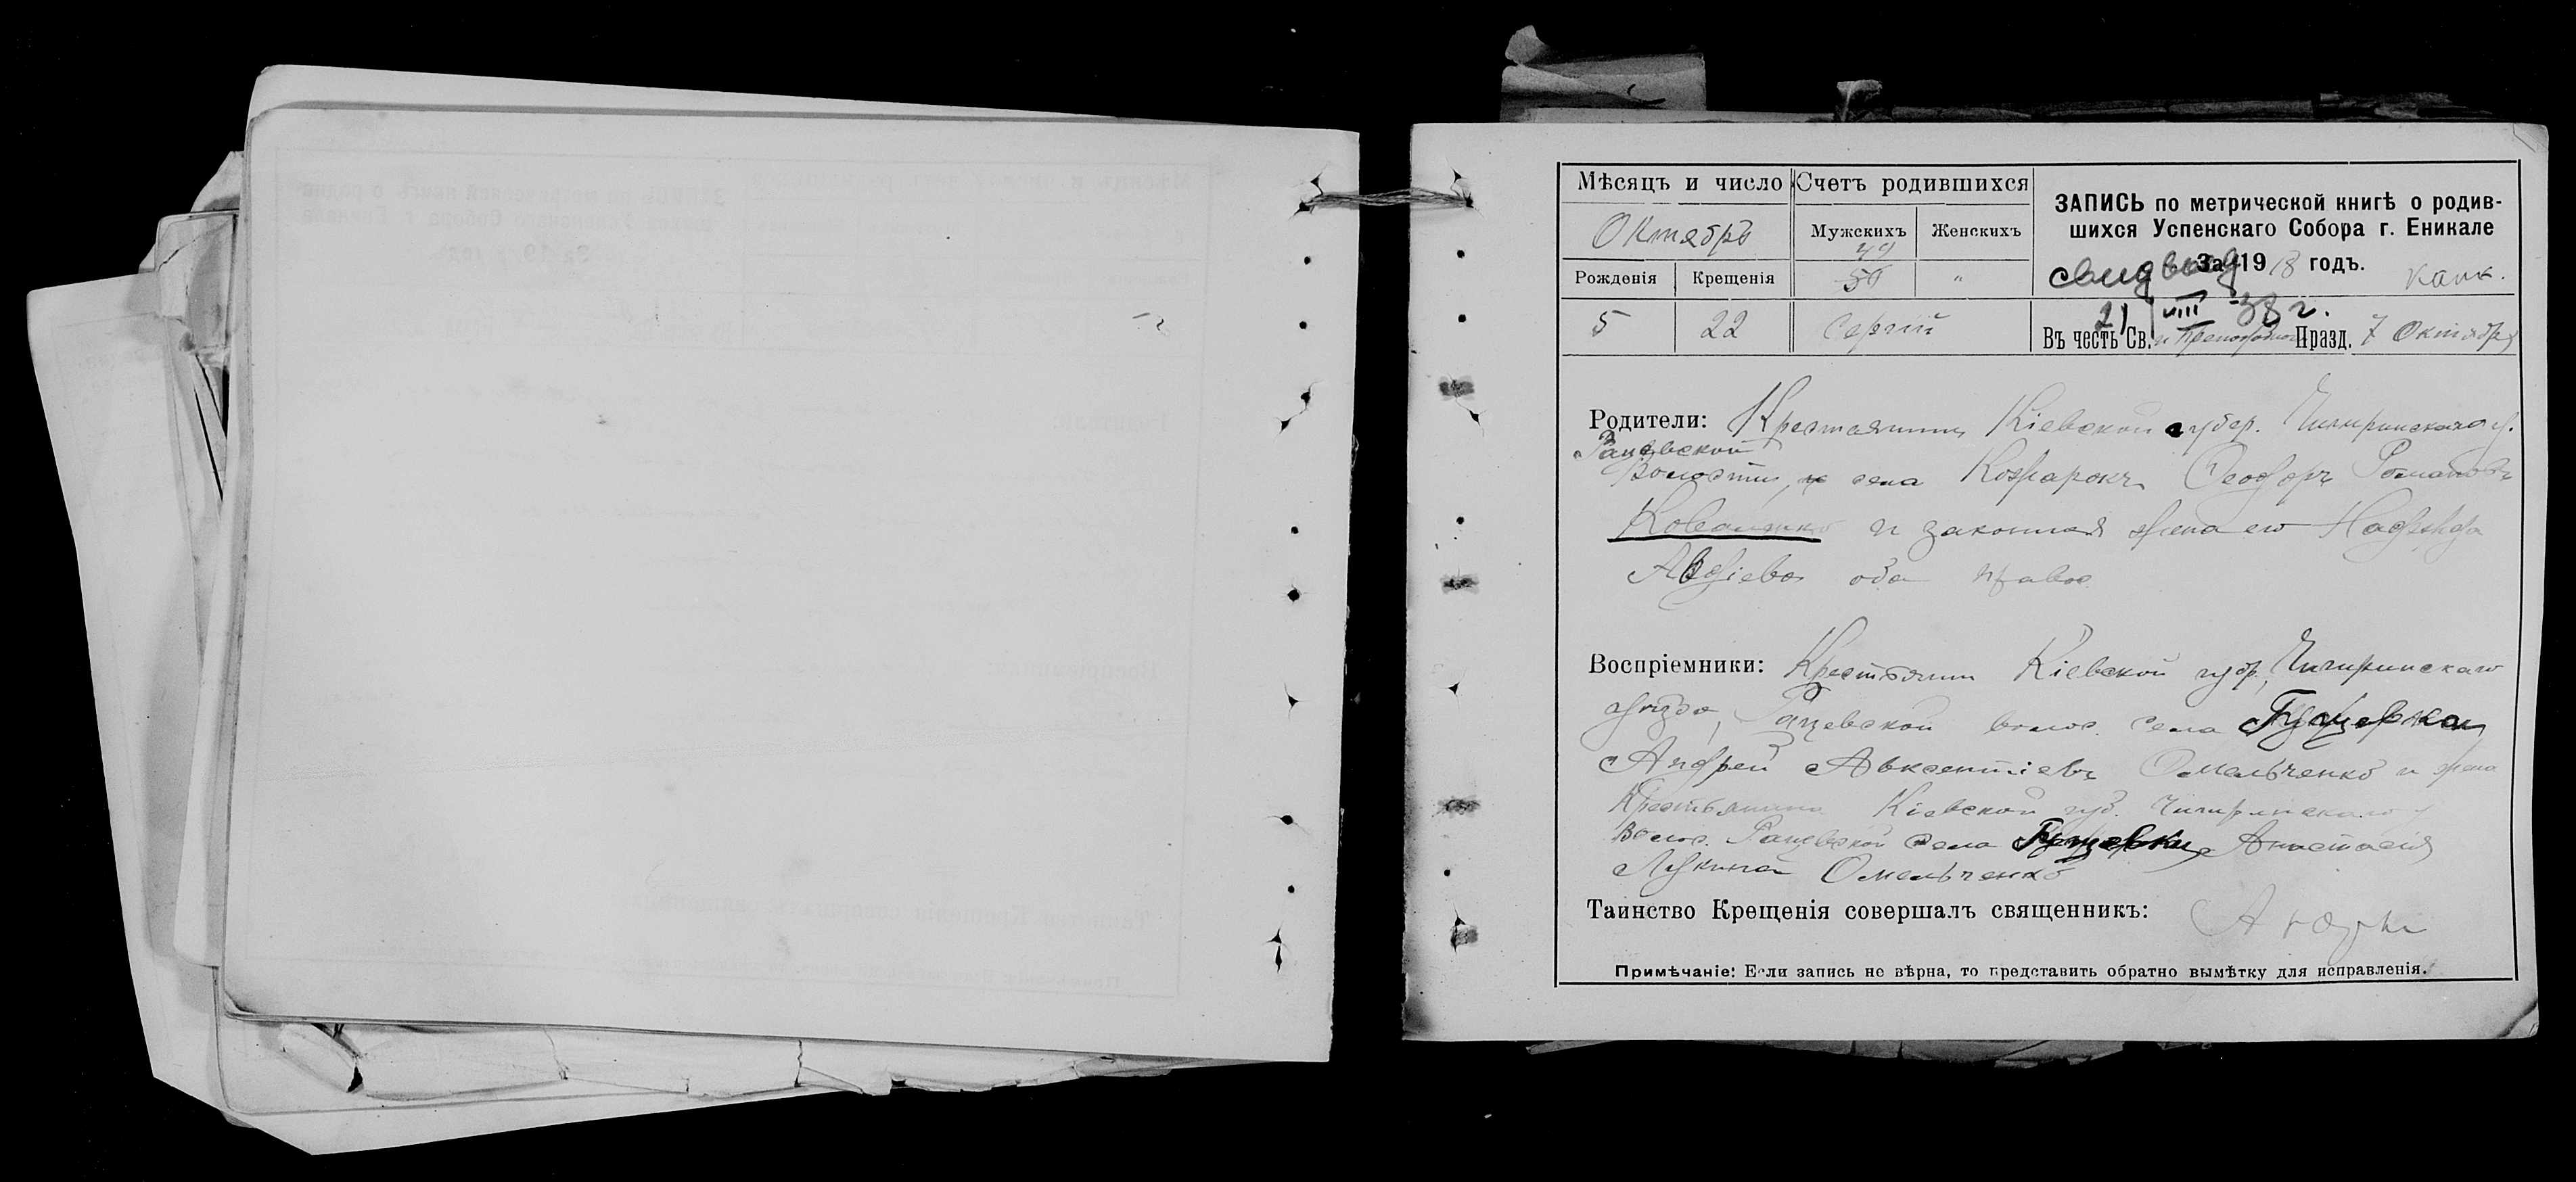 Мѣсяцъ и число
Счетъ родившихся
ЗАПИСЬ по метрической книгѣ о родив-
шихся Успенскаго Собора г. Еникале
За 1918 годъ.
Октябрь
Мужскихъ
Женскихъ
49
Рожденія
Крещенія
"
5
22
Сергій
21/VIII-38 г.
Въ честь Св.
Празд. 7 Октября
Родители: Крестьянинъ Кіевской губер. Чигиринскаго у.
Рацевской
Волости, села Кожарокъ Ѳеодоръ Романовъ
и законная жена его Надежда
Авдіева оба правос
Воспріемники: Крестьянин Кіевской губ., Чигиринскаго
уѣзда, Рацевской волос. села
Андрей Авксентіевъ Омельченко и жена
Крестьянина Кіевской губ. Чигиринскаго у
Волос. Рацевской села Анастасія
Лукина Омельченко
Таинство Крещенія совершалъ священникъ:
Примѣчаніе: Если запись не вѣрна, то представить обратно вымѣтку для исправленія.